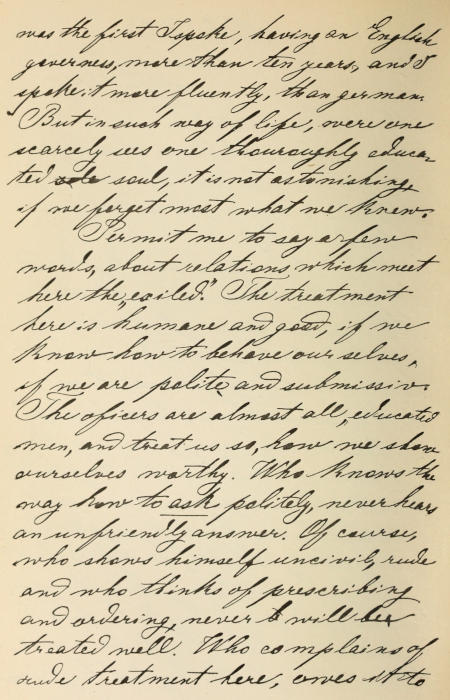 was the first I spoke, having an English
governess, more than ten years, and I
spoke it more fluently, than german.
But in such way of life, were one
scarcely sees one thouroughly educa-
ted soul, it is not astonishing,
if we forget most what we knew.
Permit me to say a few
words, about relations, which meet
here the „exiled." The treatment
here is humane and good, if we
know how to behave our selves,
if we are polite and submissiv.
The oficers are almost all, educated
men, and treat us so, how we show
ourselves worthy. Who knows the
way how to ask politely, never hears
an unfriendly answer. Of course,
who shows himself uncivil, rude
and who thinks of prescribing
and ordering, never will bee
treated well. Who complains of
rude treatment here, owes it to